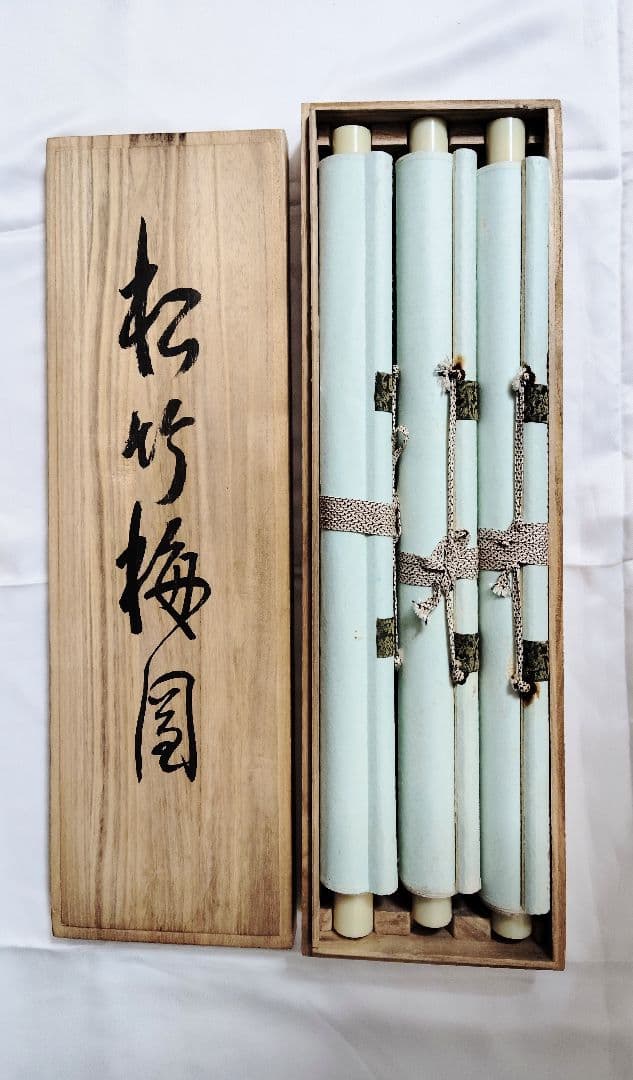 松竹梅図